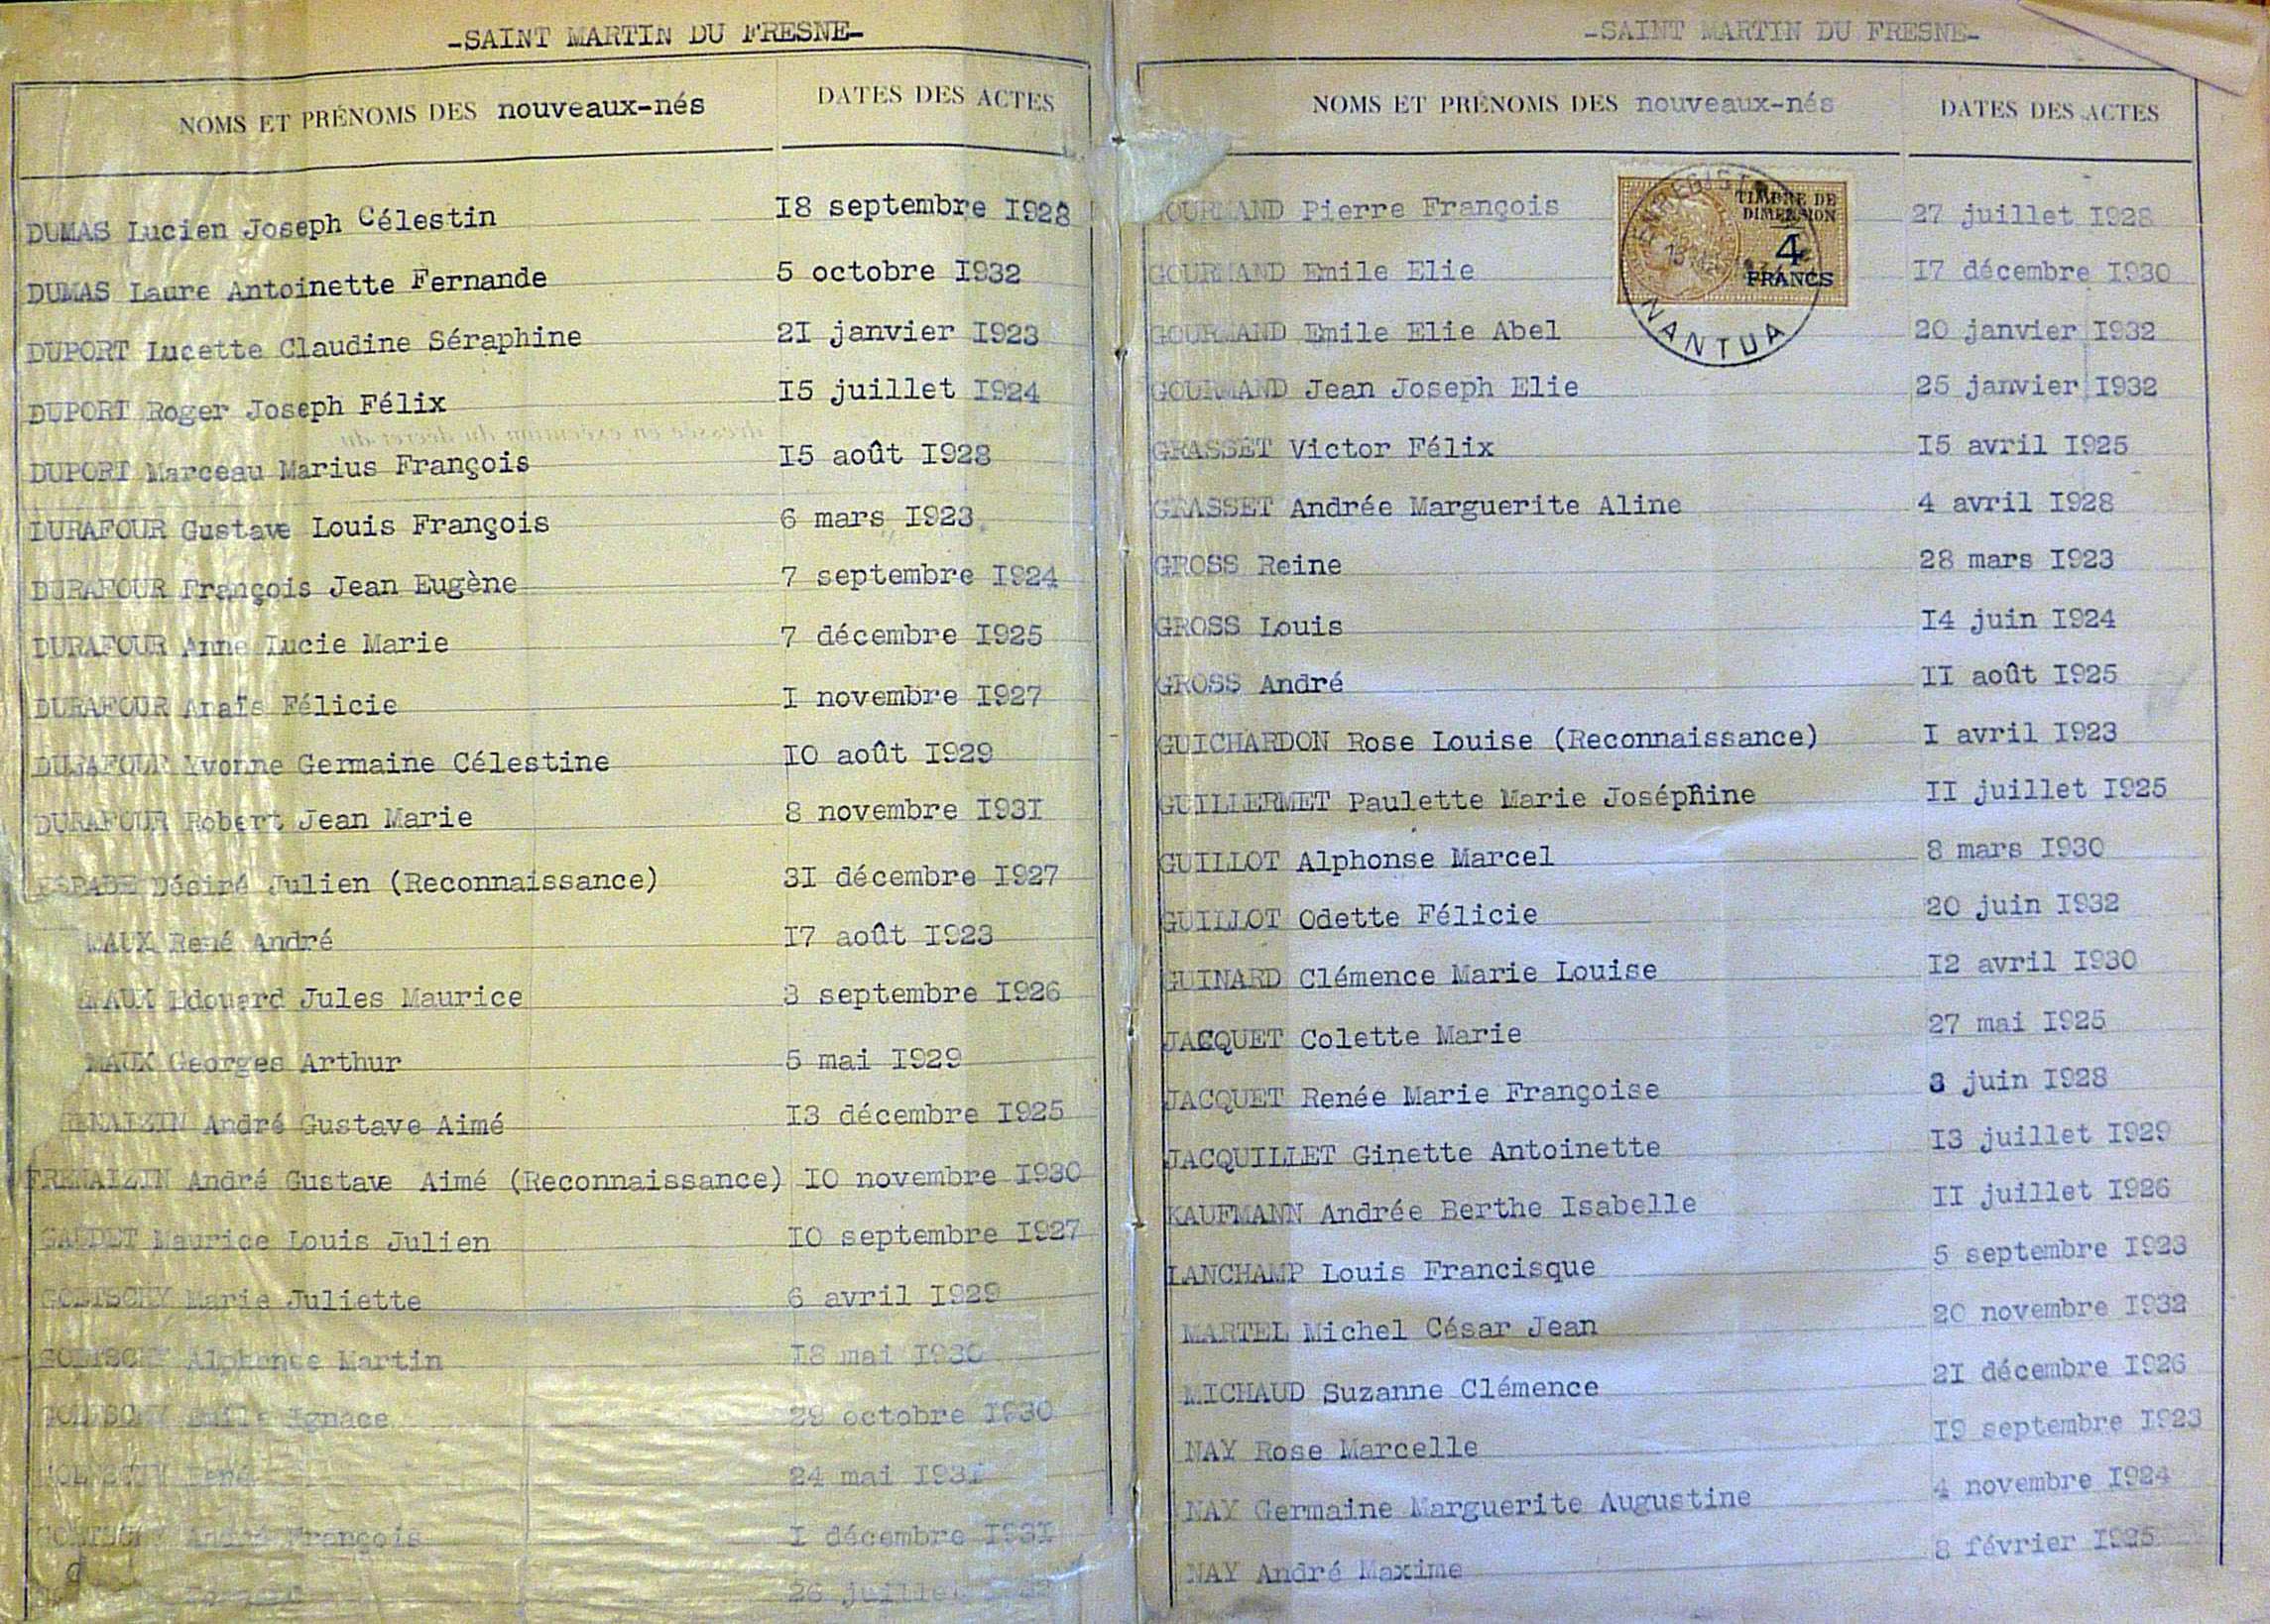 -SAINT MARTIN DU FRESNE-
NOMS ET PRÉNOMS DES nouveaux-nés DATES DES ACTES
DUMAS Lucien Joseph Célestin 18 septembre I928
DUMAS Laure Antoinette Fernande 5 octobre I932
DUPORT Lucette Claudine Séraphine 2I janvier I923
DUPORT Roger Joseph Félix I5 juillet I924
DUPORT Marceau Marius François I5 août I928
DURAFOUR Gustave Louis François 6 mars I923
DURAFOUR François Jean Eugène 7 septembre I924
DURAFOUR Anne Lucie Marie 7 décembre I925
DURAFOUR Anaïs Félicie I novembre I927
DURAFOUR Yvonne Germaine Célestine I0 août I929
DURAFOUR Robert Jean Marie 8 novembre I93I
Désiré Julien (Reconnaissance) 3I décembre I927
MAUX René André I7 août I923
MAUX Edouard Jules Maurice 3 septembre I926
MAUX Georges Arthur 5 mai I929
ENAIZIN André Gustave Aimé I3 décembre I925
FRENAIZIN André Gustave Aimé (Reconnaissance) I0 novembre I930
GAUDET Maurice Louis Julien I0 septembre I927
GOETSCHY Marie Juliette 6 avril I929
GOETSCHY Alphonse Martin I8 mai I930
GOETSCHY Emile Ignace 29 octobre I930
GOETSCHY René 24 mai I93I
GOETSCHY André François I décembre I93I
26 juillet
-SAINT MARTIN DU FRESNE-
NOMS ET PRÉNOMS DES nouveaux-nés DATES DES ACTES
GOURMAND Pierre François 27 juillet I928
TIMBRE DE
DIMENSION
4
FRANCS
NANTUA
GOURMAND Emile Elie I7 décembre I930
GOURMAND Emile Elie Abel 20 janvier I932
GOURMAND Jean Joseph Elie 25 janvier I932
GRASSET Victor Félix I5 avril I925
GRASSET Andrée Marguerite Aline 4 avril I928
GROSS Reine 28 mars I923
GROSS Louis I4 juin I924
GROSS André II août I925
GUICHARDON Rose Louise (Reconnaissance) I avril I923
GUILLERMET Paulette Marie Joséphine II juillet I925
GUILLOT Alphonse Marcel 8 mars I930
GUILLOT Odette Félicie 20 juin I932
GUINARD Clémence Marie Louise I2 avril I930
JACQUET Colette Marie 27 mai I925
JACQUET Renée Marie Françoise 3 juin I928
JACQUILLET Ginette Antoinette I3 juillet I929
KAUFMANN Andrée Berthe Isabelle II juillet I926
LANCHAMP Louis Francisque 5 septembre I923
MARTEL Michel César Jean 20 novembre I932
MICHAUD Suzanne Clémence 2I décembre I926
NAY Rose Marcelle I9 septembre I923
NAY Germaine Marguerite Augustine 4 novembre I924
NAY André Maxime 8 février I925